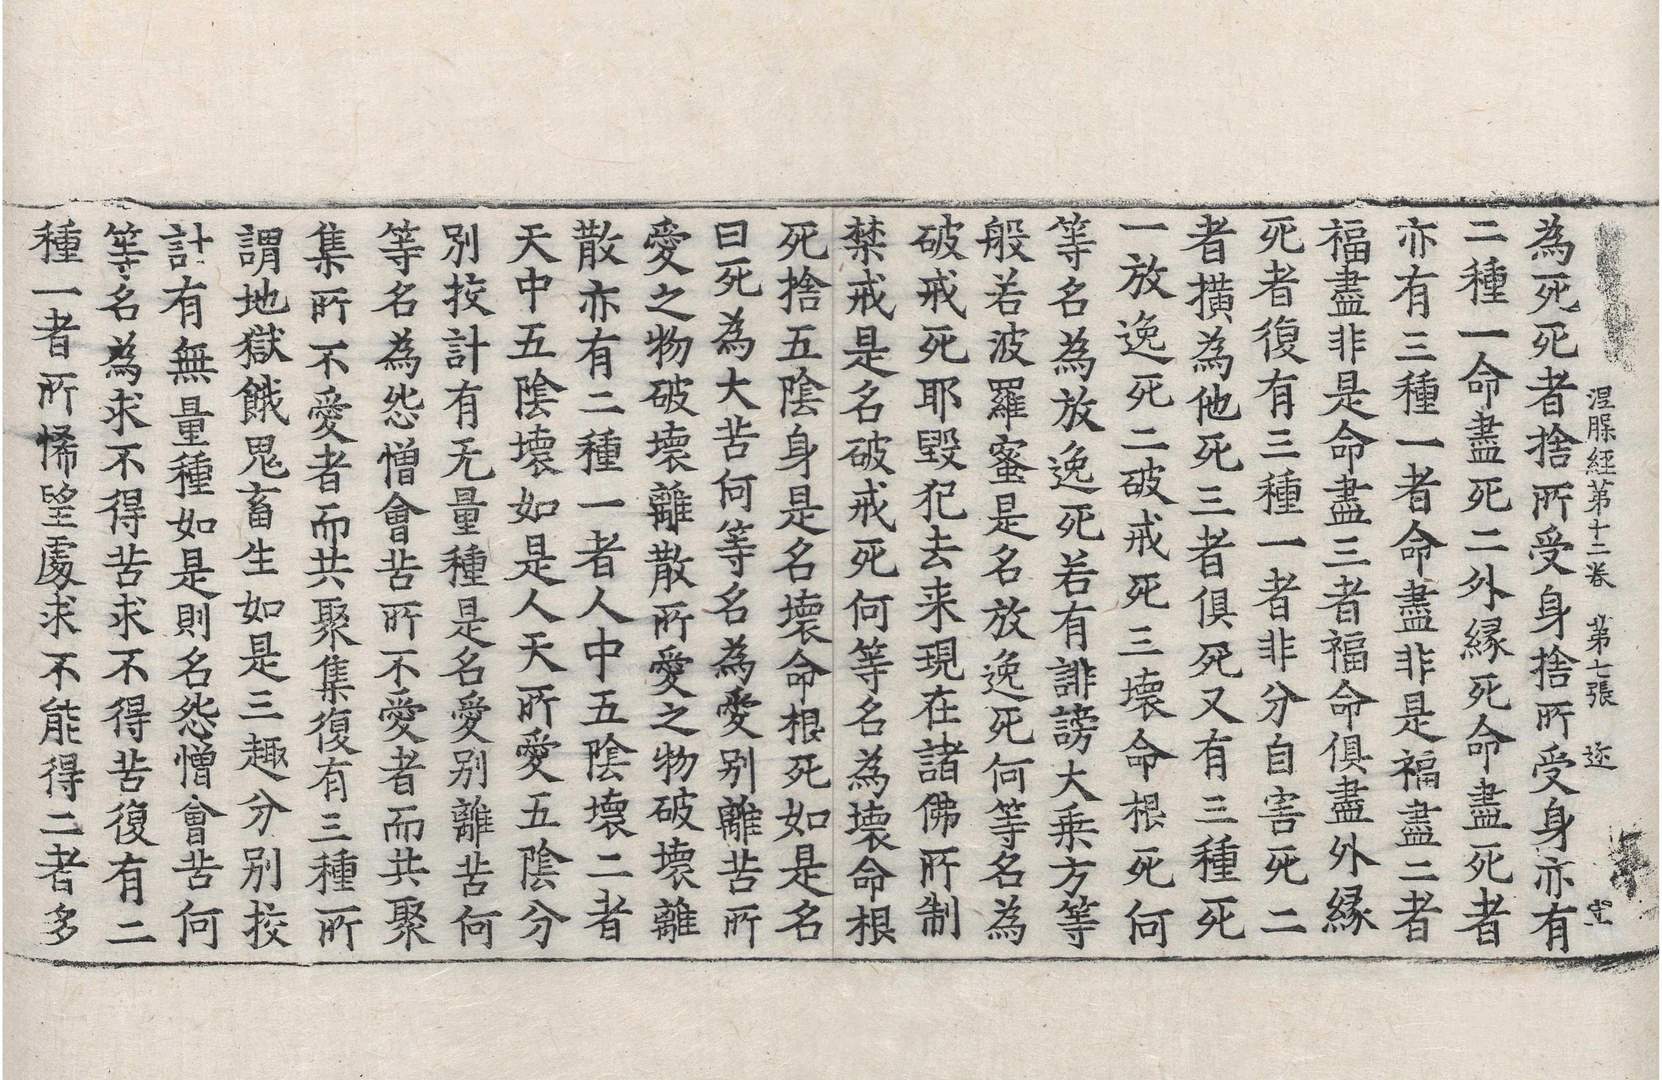 涅槃經第十二卷 第七張 迩
為死死者捨所受身捨所受身亦有
二種一命盡死二外緣死命盡死者
亦有三種一者命盡非是福盡二者
福盡非是命盡三者福命俱盡外緣
死者復有三種一者非分自害死二
者撗為他死三者俱死又有三種死
一放逸死二破戒死三壞命根死何
等名為放逸死若有誹謗大乗方等
般若波羅蜜是名放逸死何等名為
破戒死耶毀犯去来現在諸佛所制
禁戒是名破戒死何等名為壞命根
死捨五陰身是名壞命根死如是名
曰死為大苦何等名為愛别離苦所
愛之物破壞離散所愛之物破壞離
散亦有二種一者人中五陰壞二者
天中五陰壞如是人天所愛五陰分
别挍計有无量種是名愛别離苦何
等名為怨憎會苦所不愛者而共聚
集所不愛者而共聚集復有三種所
謂地獄餓鬼畜生如是三趣分别挍
計有無量種如是則名怨憎會苦何
等名為求不得苦求不得苦復有二
種一者所悕望處求不能得二者多